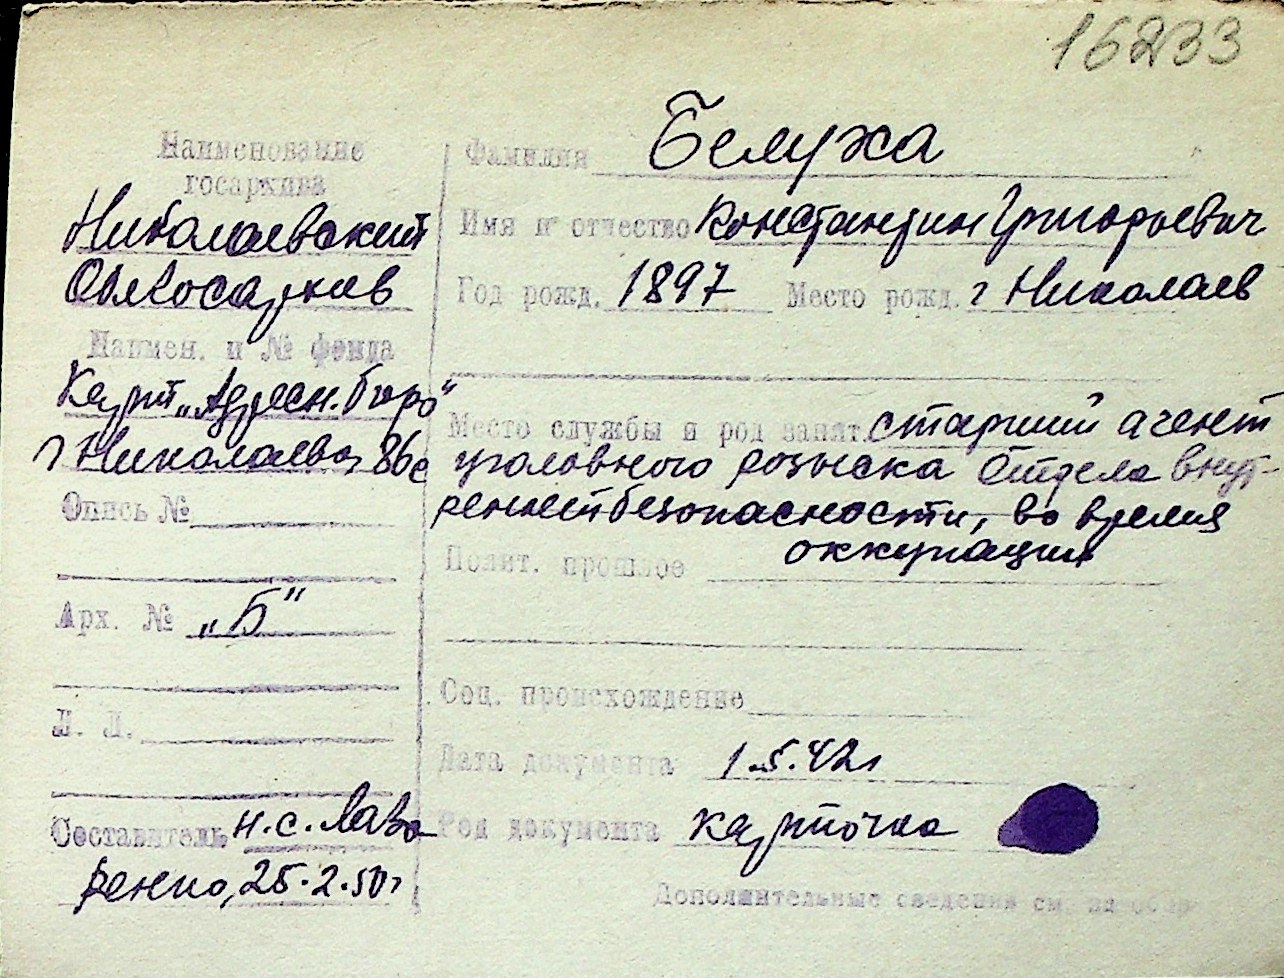 16233
Наименование
госархива
Николаевский
Облгосархив
Наимен. и № фонда
Карт „Адресн. бюро"
г Николаева, 86с
Опись №
Арх. № „Б"
Л. Л.
Составитель н.с. Лавренко, 25.2.50г
Фамилия Белуха
Имя и отчество Константин Григорьевич
Год рожд. 1897 Место рожд. г Николаев
Место службы и род занят. старший агент
уголовного розыска Отдела внут-
ренней безопасности, во время
оккупации
Полит. прошлое
Соц. происхождение
Дата документа 1.5.42г
Род документа карточка
Дополнительные сведения см. на обор